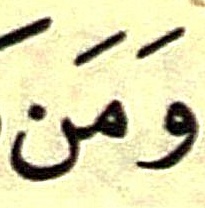 وَمَن